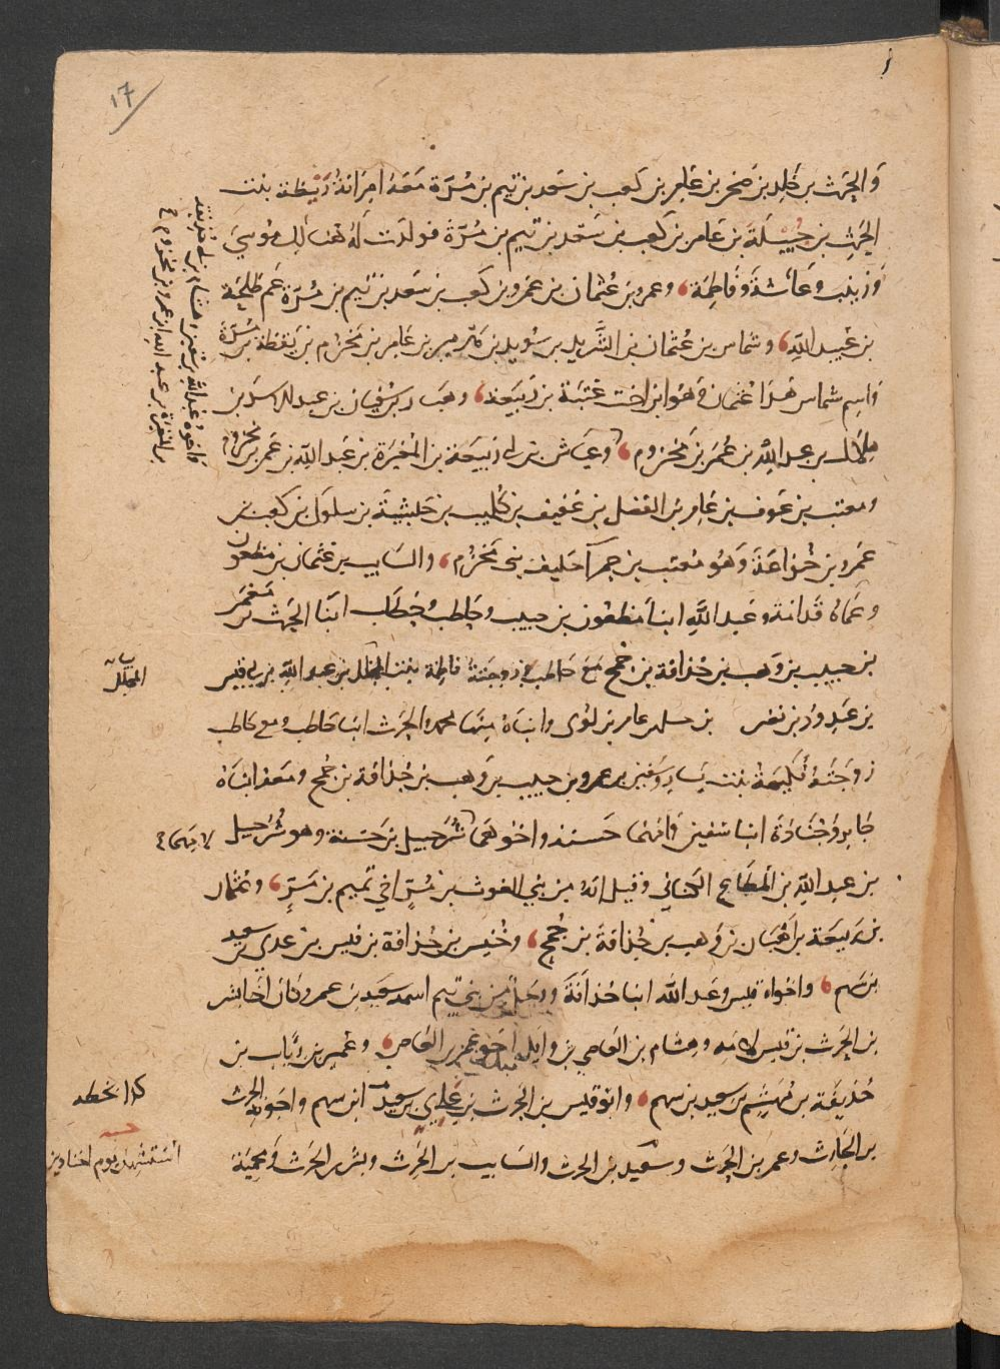 ١٧
والحرث بن خلد بن صخر بن عامر بن كعب بن سعد بن تيم بن مرة معه امراته ريطة بنت
الحرث بن جبيلة بن عامر بن كعب بن سعد بن تيم بن مرة فولدت له هنالك موسى
وزينب وعائشة وفاطمة، وعمرو بن عثمان بن عمرو بن كعب بن سعد بن تيم بن مرة عم طلحة
بن عبيد الله، وشماس بن عثمان بن الشريد بن سويد بن هرمي بن عامر بن مخزوم بن يقظة بن مرة
واسم شماس هذا عثمان وهو ابن اخت عتبة بن ربيعة، وهبار بن سفيان بن عبد الاسد بن
هلال بن عبد الله بن عمر بن مخزوم، وعياش بن ابي ربيعة بن المغيرة بن عبد الله بن عمر بن مخزوم
واخوه عبد الله بن سفين وهشام بن ابي حذيفة
بن المغيرة بن عبد الله بن عمر بن مخزوم
ومعتب بن عوف بن عامر بن الفضل بن عفيف بن كليب بن حبشية بن سلول بن كعب بن
عمرو بن خزاعة وهو معتب بن حمرا حليف بني مخزوم، والسايب بن عثمان بن مظعون
وعماه قدامة وعبد الله ابنا مظعون بن حبيب وحاطب وخطاب ابنا الحرث بن معمر
بن حبيب بن وهب بن حذافة بن جمح مع حاطب زوجته فاطمة بنت المجلل بن عبد الله بن ابي قيس
المجلل
بن عبد ود بن نصر بن عامر بن لؤى وابناه منها محمد والحرث ابنا حاطب ومع حاطب
زوجته فكيهة بنت يسار وسفين بن معمر بن حبيب بن وهب بن حذافة بن جمح ومعه ابناه
جابر وجنادة ابنا سفين وامهما حسنة واخوهما شرحبيل بن حسنة وهو شرحبيل
لامهما
بن عبد الله بن المطاع الكناني وقيل انه من بني الغوث بن مر اخي تميم بن مر، وعثمان
بن ربيعة بن اهبان بن وهب بن حذافة بن جمح، وخنيس بن حذافة بن قيس بن عدي بن سعيد
بن سهم، واخواه قيس وعبد الله ابنا حذافة ورجل من بني تيم اسمه سعيد بن عمرو كان اخا بشر
بن الحرث بن قيس لامه وهشام بن العاصي بن وايل اخو عمرو بن العاص، وعمير بن رئاب بن
حذيفة بن مهشم بن سعيد بن سهم، وابو قيس بن الحرث بن قيس بن عدي بن سعيد بن سهم واخوته الحرث
كذا بخطه
بن الحارث ومعمر بن الحرث وسعيد بن الحرث والسايب بن الحرث وبشر بن الحرث ومحمية
استشهد يوم اجنادين